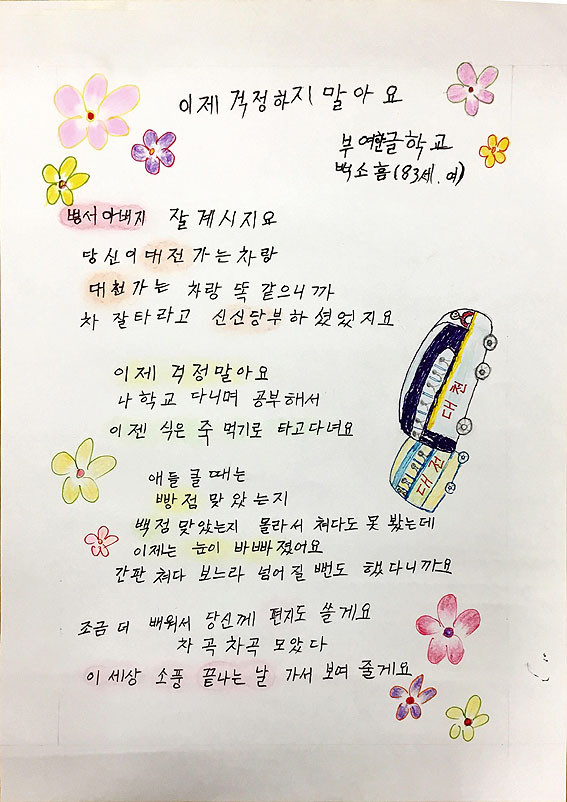 이제 걱정하지 말아요
부여한글학교
백소흠(83세.여)
병서아배지 잘 계시지요
당신이 대전 가는 차랑
대천가는 차랑 똑 같으니까
차 잘타라고 신신당부하셨었지요
이제 걱정말아요
나 학교 다니며 공부해서
이젠 식은 죽 먹기로 타고다녀요
대천
대전
애들 클때는
빵점 맞았는지
백점 맞았는지 몰라서 쳐다도 못 봤는데
이제는 눈이 바빠졌어요
간판 쳐다 보느라 넘어질 뻔도 했다니까요
조금 더 배워서 당신께 편지도 쓸게요
차곡차곡 모았다
이 세상 소풍 끝나는 날 가서 보여 줄게요